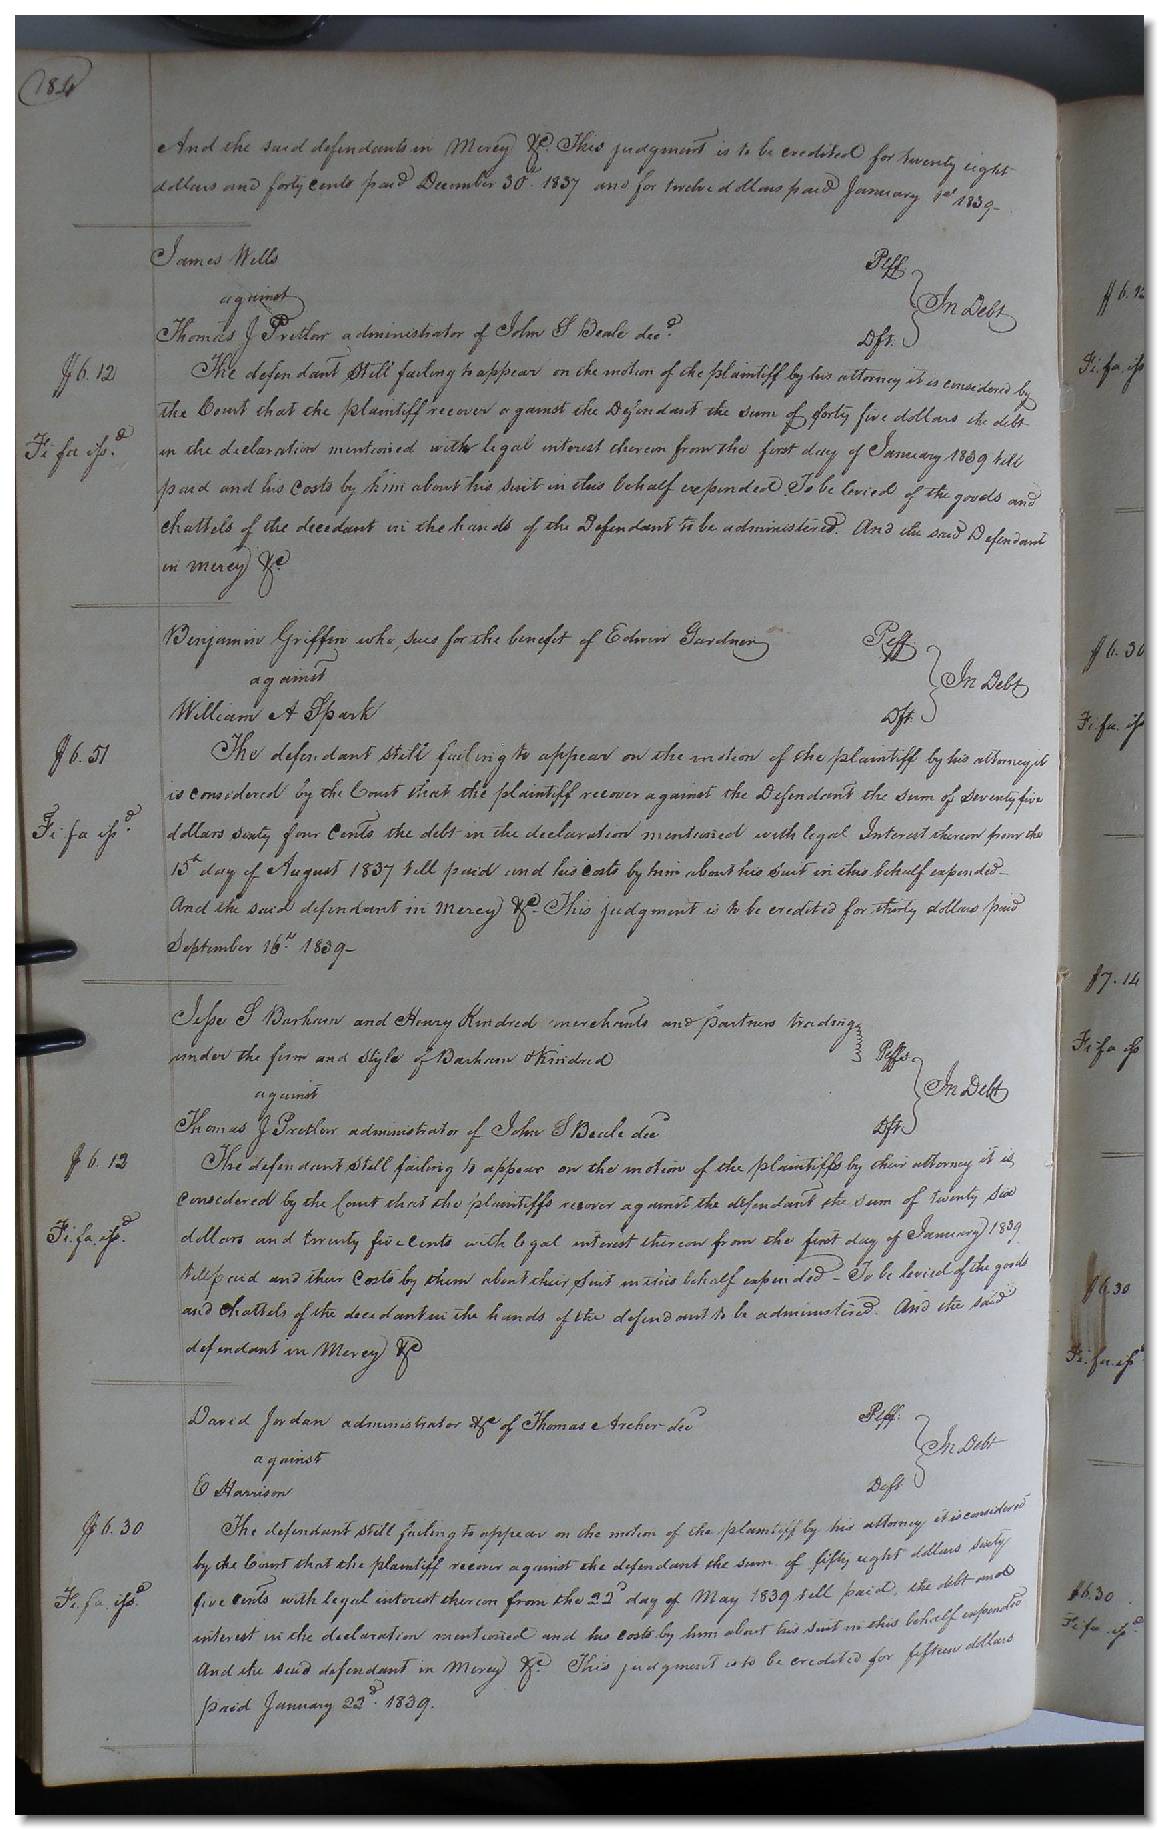 184
And the said defendants in Mercy &c. This judgment is to be credited for twenty eight
dollars and forty cents paid December 30th 1837 and for twelve dollars paid January 1st 1839-
James Wells Plff
against In Debt
Thomas J Pretlow administrator of John S Beale decd. Dft.
$6.12 The defendant still failing to appear on the motion of the plaintiff by his attorney it is considered by
the Court that the plaintiff recover against the Defendant the sum of forty five dollars the debt
Fi fa issd. in the declaration mentioned with legal interest thereon from the first day of January 1839 till
paid and his costs by him about his suit in this behalf expended To be levied of the goods and
chattels of the decedant in the hands of the Defendant to be administered. And the said Defendant
in mercy &c
Benjamin Griffin who sues for the benefit of Edwin Gardner Plff
against In Debt
William A Spark Dft.
$6.51 The defendant still failing to appear on the motion of the plaintiff by his attorney it
is considered by the Court that the plaintiff recover against the Defendant the sum of seventy five
Fi fa issd. dollars sixty four cents the debt in the declaration mentioned with legal Interest thereon from the
15th day of August 1837 till paid and his costs by him about his suit in this behalf expended-
And the said defendant in Mercy &c- This judgment is to be credited for thirty dollars paid
September 16th 1839-
Jesse S Barham and Henry Kindred merchants and partners trading
under the firm and style of Barham & Kindred Plffs
against In Debt
Thomas J Pretlow administrator of John S Beale decd Dft.
$6.12 The defendant still failing to appear on the motion of the plaintiffs by their attorney it is
considered by the Court that the plaintiffs recover against the defendant the sum of twenty six
Fi.fa.issd. dollars and twenty five cents with legal interest thereon from the first day of January 1839
till paid and their costs by them about their suit in this behalf expended - To be levied of the goods
and chattels of the decedant in the hands of the defendant to be administered. And the said
defendant in Mercy &c
David Jordan administrator &c of Thomas Archer decd Plff.
against In Debt
E Harrison Deft
$6.30 The defendant still failing to appear on the motion of the plaintiff by his attorney it is considered
by the Court that the plaintiff recover against the defendant the sum of fifty eight dollars sixty
Fi.fa.issd. five cents with legal interest thereon from the 22d day of May 1839 till paid, the debt and
interest in the declaration mentioned and his costs by him about his suit in this behalf expended
And the said defendant in Mercy &c. This judgment is to be credited for fifteen dollars
paid January 22d. 1839.
$6.12
Fi.fa.iss
$6.30
Fi.fa.iss
$7.14
Fi.fa iss
$6.30
Fi.fa.iss
$6.30
Fi.fa.issd.